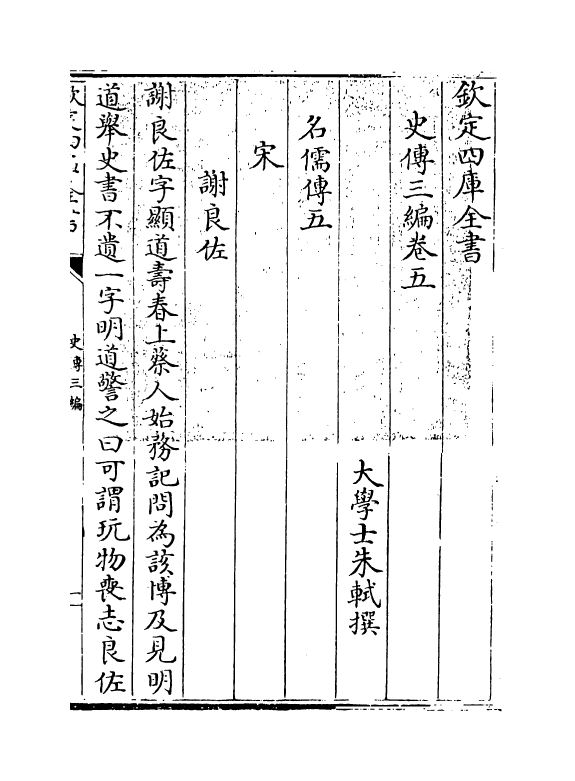 欽定四庫全書
史傳三編卷五
大學士朱軾撰
名儒傳五
宋
謝良佐
謝良佐字顯道壽春上蔡人始務記問為該博及見明
道舉史書不遺一字明道警之曰可謂玩物喪志良佐
史傳三編
一